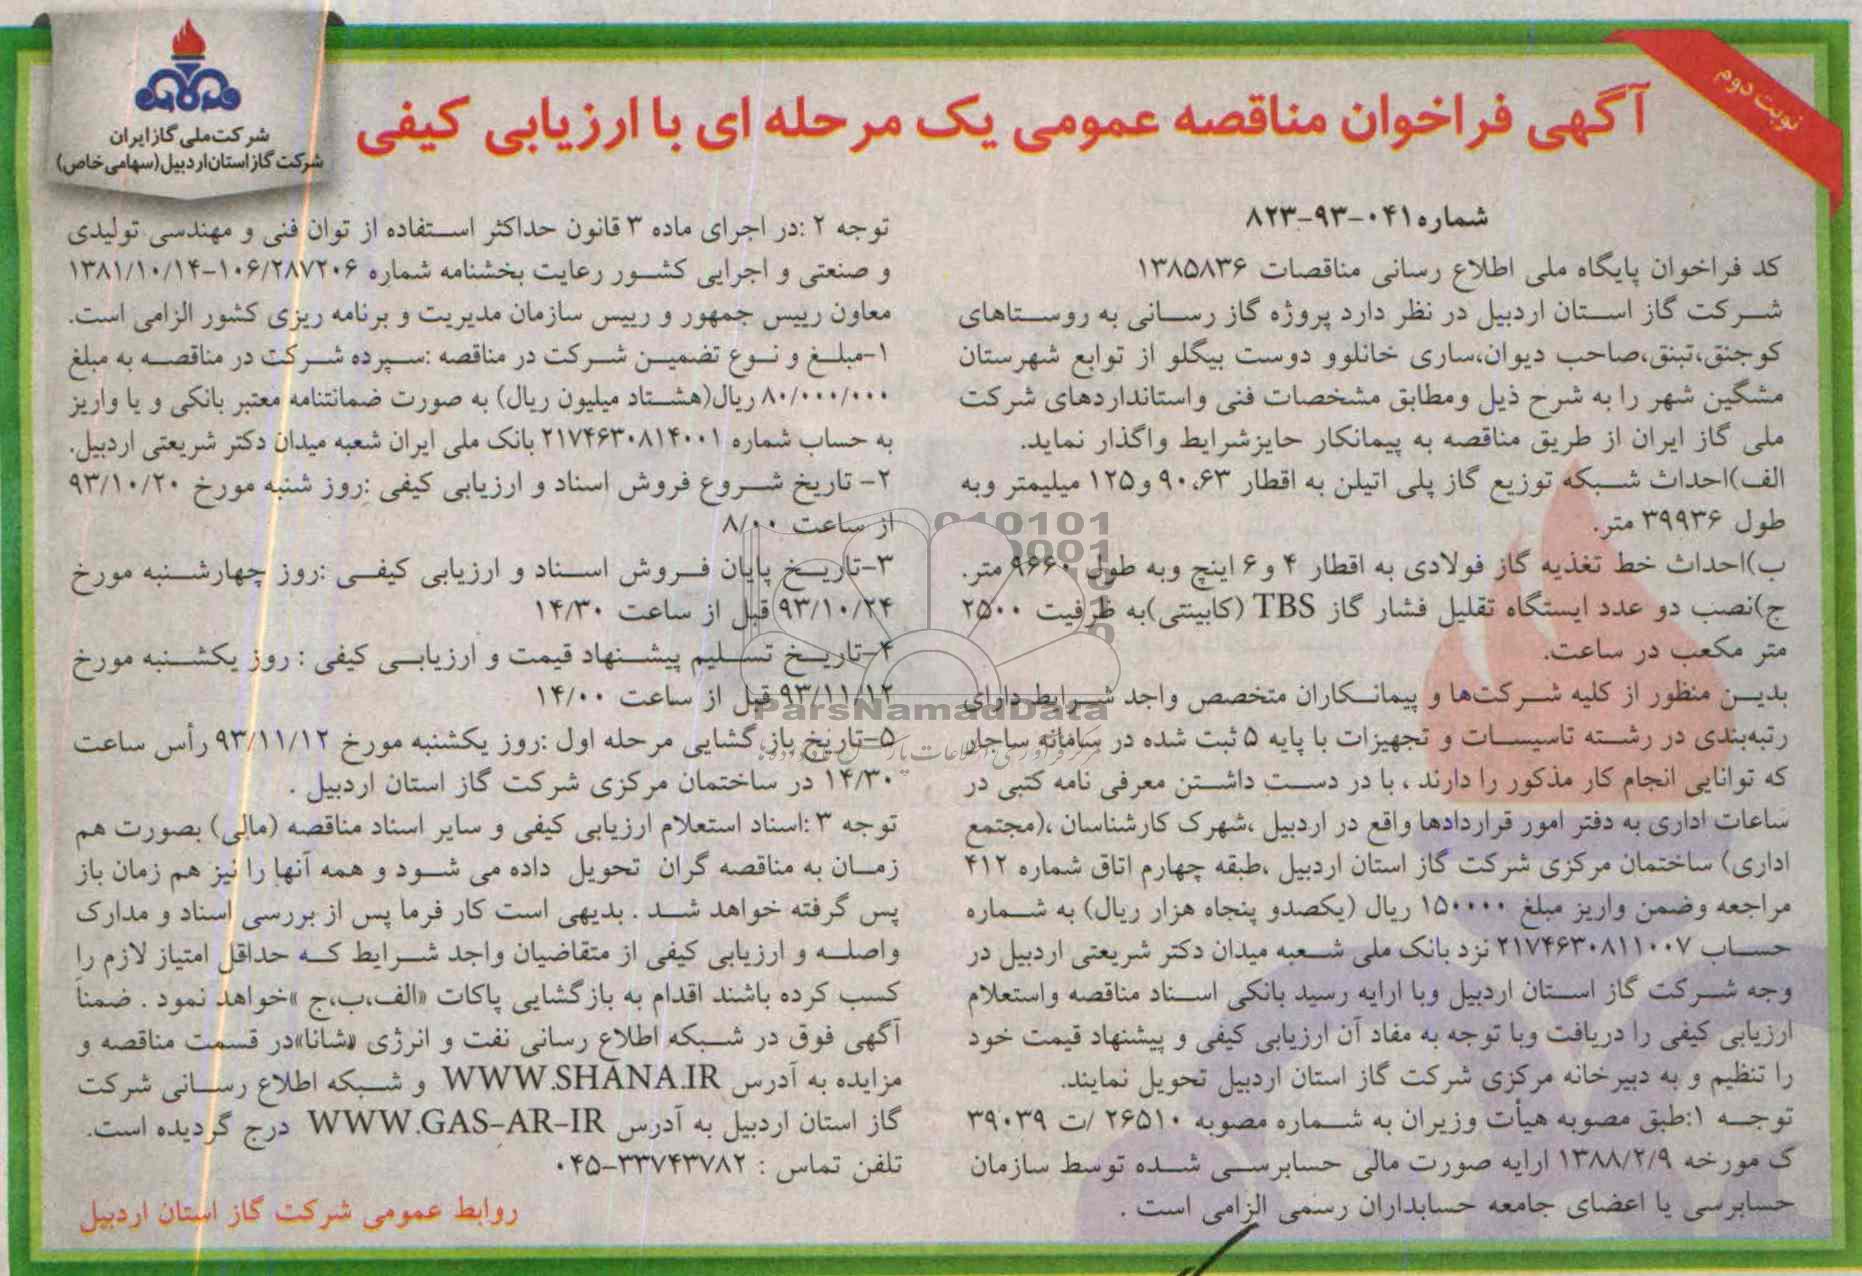 نوبت دوم
شرکت ملی گاز ایران
شرکت گاز استان اردبیل (سهامی خاص)
آگهی فراخوان مناقصه عمومی یک مرحله ای با ارزیابی کیفی
شماره ۰۴۱-۹۳-۸۲۳
کد فراخوان پایگاه ملی اطلاع رسانی مناقصات ۱۳۸۵۸۳۶
شرکت گاز استان اردبیل در نظر دارد پروژه گاز رسانی به روستاهای
کوجنق،تبنق،صاحب دیوان،ساری خانلوو دوست بیگلو از توابع شهرستان
مشگین شهر را به شرح ذیل ومطابق مشخصات فنی واستانداردهای شرکت
ملی گاز ایران از طریق مناقصه به پیمانکار حایزشرایط واگذار نماید.
الف)احداث شبکه توزیع گاز پلی اتیلن به اقطار ۹۰،۶۳ و۱۲۵ میلیمتر وبه
طول ۳۹۹۳۶ متر.
ب)احداث خط تغذیه گاز فولادی به اقطار ۴ و۶ اینچ وبه طول ۹۶۶۰ متر.
ج)نصب دو عدد ایستگاه تقلیل فشار گاز TBS (کابینتی)به ظرفیت ۲۵۰۰
متر مکعب در ساعت.
بدین منظور از کلیه شرکت‌ها و پیمانکاران متخصص واجد شرایط دارای
رتبه‌بندی در رشته تاسیسات و تجهیزات با پایه ۵ ثبت شده در سامانه ساجار
که توانایی انجام کار مذکور را دارند ، با در دست داشتن معرفی نامه کتبی در
ساعات اداری به دفتر امور قراردادها واقع در اردبیل ،شهرک کارشناسان ،(مجتمع
اداری) ساختمان مرکزی شرکت گاز استان اردبیل ،طبقه چهارم اتاق شماره ۴۱۲
مراجعه وضمن واریز مبلغ ۱۵۰۰۰۰ ریال (یکصدو پنجاه هزار ریال) به شماره
حساب ۲۱۷۴۶۳۰۸۱۱۰۰۷ نزد بانک ملی شعبه میدان دکتر شریعتی اردبیل در
وجه شرکت گاز استان اردبیل وبا ارایه رسید بانکی اسناد مناقصه واستعلام
ارزیابی کیفی را دریافت وبا توجه به مفاد آن ارزیابی کیفی و پیشنهاد قیمت خود
را تنظیم و به دبیرخانه مرکزی شرکت گاز استان اردبیل تحویل نمایند.
توجه ۱:طبق مصوبه هیأت وزیران به شماره مصوبه ۲۶۵۱۰ /ت ۳۹۰۳۹
ک مورخه ۱۳۸۸/۲/۹ ارایه صورت مالی حسابرسی شده توسط سازمان
حسابرسی یا اعضای جامعه حسابداران رسمی الزامی است .
توجه ۲ :در اجرای ماده ۳ قانون حداکثر استفاده از توان فنی و مهندسی تولیدی
و صنعتی و اجرایی کشور رعایت بخشنامه شماره ۱۰۶/۲۸۷۲۰۶-۱۳۸۱/۱۰/۱۴
معاون رییس جمهور و رییس سازمان مدیریت و برنامه ریزی کشور الزامی است.
۱-مبلغ و نوع تضمین شرکت در مناقصه :سپرده شرکت در مناقصه به مبلغ
۸۰/۰۰۰/۰۰۰ ریال(هشتاد میلیون ریال) به صورت ضمانتنامه معتبر بانکی و یا واریز
به حساب شماره ۲۱۷۴۶۳۰۸۱۴۰۰۱ بانک ملی ایران شعبه میدان دکتر شریعتی اردبیل.
۲- تاریخ شروع فروش اسناد و ارزیابی کیفی :روز شنبه مورخ ۹۳/۱۰/۲۰
از ساعت ۸/۰۰
۳-تاریخ پایان فروش اسناد و ارزیابی کیفی :روز چهارشنبه مورخ
۹۳/۱۰/۲۴ قبل از ساعت ۱۴/۳۰
۴-تاریخ تسلیم پیشنهاد قیمت و ارزیابی کیفی : روز یکشنبه مورخ
۹۳/۱۱/۱۲ قبل از ساعت ۱۴/۰۰
۵-تاریخ بازگشایی مرحله اول :روز یکشنبه مورخ ۹۳/۱۱/۱۲ رأس ساعت
۱۴/۳۰ در ساختمان مرکزی شرکت گاز استان اردبیل .
توجه ۳ :اسناد استعلام ارزیابی کیفی و سایر اسناد مناقصه (مالی) بصورت هم
زمان به مناقصه گران تحویل داده می شود و همه آنها را نیز هم زمان باز
پس گرفته خواهد شد . بدیهی است کار فرما پس از بررسی اسناد و مدارک
واصله و ارزیابی کیفی از متقاضیان واجد شرایط که حداقل امتیاز لازم را
کسب کرده باشند اقدام به بازگشایی پاکات «الف،ب،ج »خواهد نمود . ضمناً
آگهی فوق در شبکه اطلاع رسانی نفت و انرژی «شانا»در قسمت مناقصه و
مزایده به آدرس WWW.SHANA.IR و شبکه اطلاع رسانی شرکت
گاز استان اردبیل به آدرس WWW.GAS-AR-IR درج گردیده است.
تلفن تماس : ۳۳۷۴۳۷۸۲-۰۴۵
روابط عمومی شرکت گاز استان اردبیل
ParsNamadData